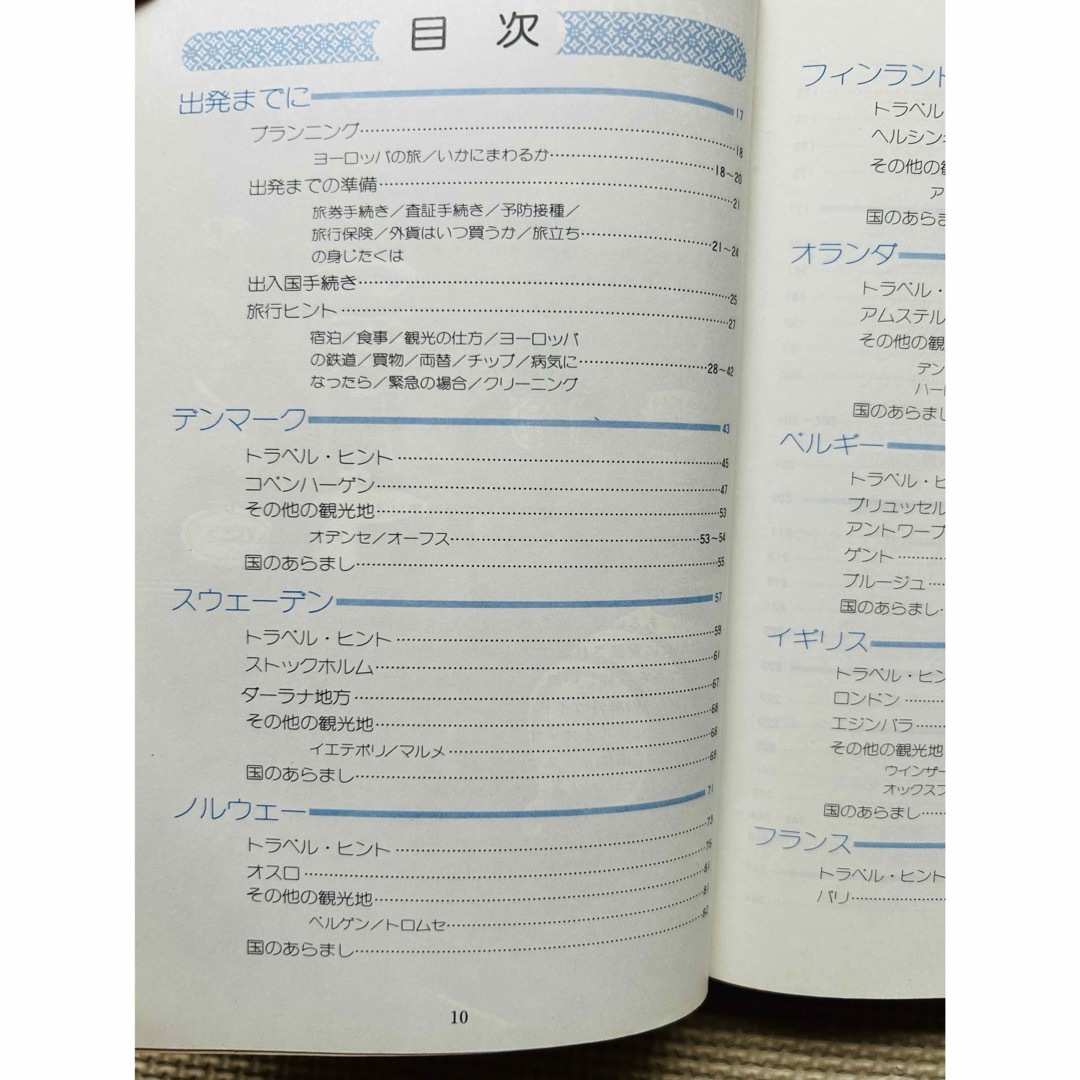 目 次
出発までに 17
プランニング 18
ヨーロッパの旅／いかにまわるか 18～20
出発までの準備 21
旅券手続き／査証手続き／予防接種／
旅行保険／外貨はいつ買うか／旅立ち 21～24
の身じたくは
出入国手続き 25
旅行ヒント 27
宿泊／食事／観光の仕方／ヨーロッパ
の鉄道／買物／両替／チップ／病気に 28～42
なったら／緊急の場合／クリーニング
デンマーク 43
トラベル・ヒント 45
コペンハーゲン 47
その他の観光地 53
オデンセ／オーフス 53～54
国のあらまし 55
スウェーデン 57
トラベル・ヒント 59
ストックホルム 61
ダーラナ地方 67
その他の観光地 68
イエテボリ／マルメ 68
国のあらまし 69
ノルウェー 71
トラベル・ヒント 73
オスロ 75
その他の観光地 81
ベルゲン／トロムセ 81
国のあらまし 82
10
フィンランド
トラベル
ヘルシン
その他の
ア
国のあらま
オランダ
トラベル・
アムステル
その他の観
デン
ハー
国のあらまし
ベルギー
トラベル・ヒ
ブリュッセル
アントワープ
ゲント
ブルージュ
国のあらまし
イギリス
トラベル・ヒン
ロンドン
エジンバラ
その他の観光地
ウインザー
オックスフ
国のあらまし
フランス
トラベル・ヒント
パリ